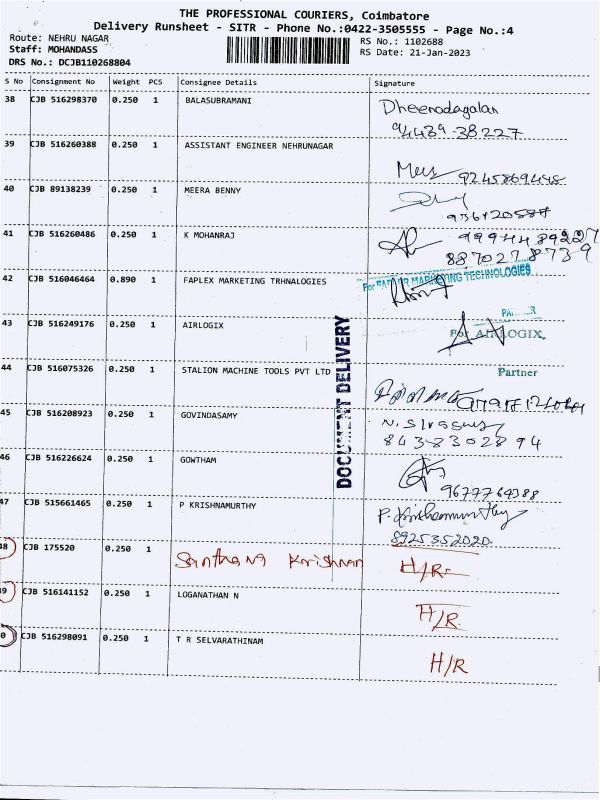 THE PROFESSIONAL COURIERS, Coimbatore
Delivery Runsheet - SITR - Phone No.:0422-3505555 - Page No.:4
Route: NEHRU NAGAR
RS No.: 1102688
Staff: MOHANDASS
RS Date: 21-Jan-2023
DRS No.: DCJB110268804
S No Consignment No Weight PCS Consignee Details Signature
38 CJB 516298370 0.250 1 BALASUBRAMANI Dheenadagalan
94439 38227
39 CJB 516260388 0.250 1 ASSISTANT ENGINEER NEHRUNAGAR
9245869448
40 CJB 89138239 0.250 1 MEERA BENNY
41 CJB 516260486 0.250 1 K MOHANRAJ
8870278739
42 CJB 516046464 0.890 1 FAPLEX MARKETING TRHNALOGIES
For MARKETING TECHNOLOGIES
43 CJB 516249176 0.250 1 AIRLOGIX For AIRLOGIX,
Partner
44 CJB 516075326 0.250 1 STALION MACHINE TOOLS PVT LTD
45 CJB 516208923 0.250 1 GOVINDASAMY
8438302894
46 CJB 516226624 0.250 1 GOWTHAM
9677764388
47 CJB 515661465 0.250 1 P KRISHNAMURTHY P. Krishnamurthy
8925352020
48 CJB 175520 0.250 1 Santhana Krishnan H/R
49 CJB 516141152 0.250 1 LOGANATHAN N H/R
0 CJB 516298091 0.250 1 T R SELVARATHINAM H/R
DOCUMENT DELIVERY